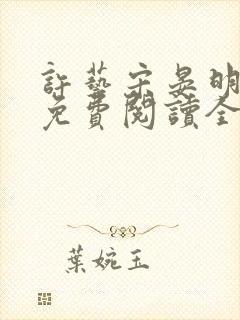 許藝宋晏明
免費閱讀全
葉婉玉